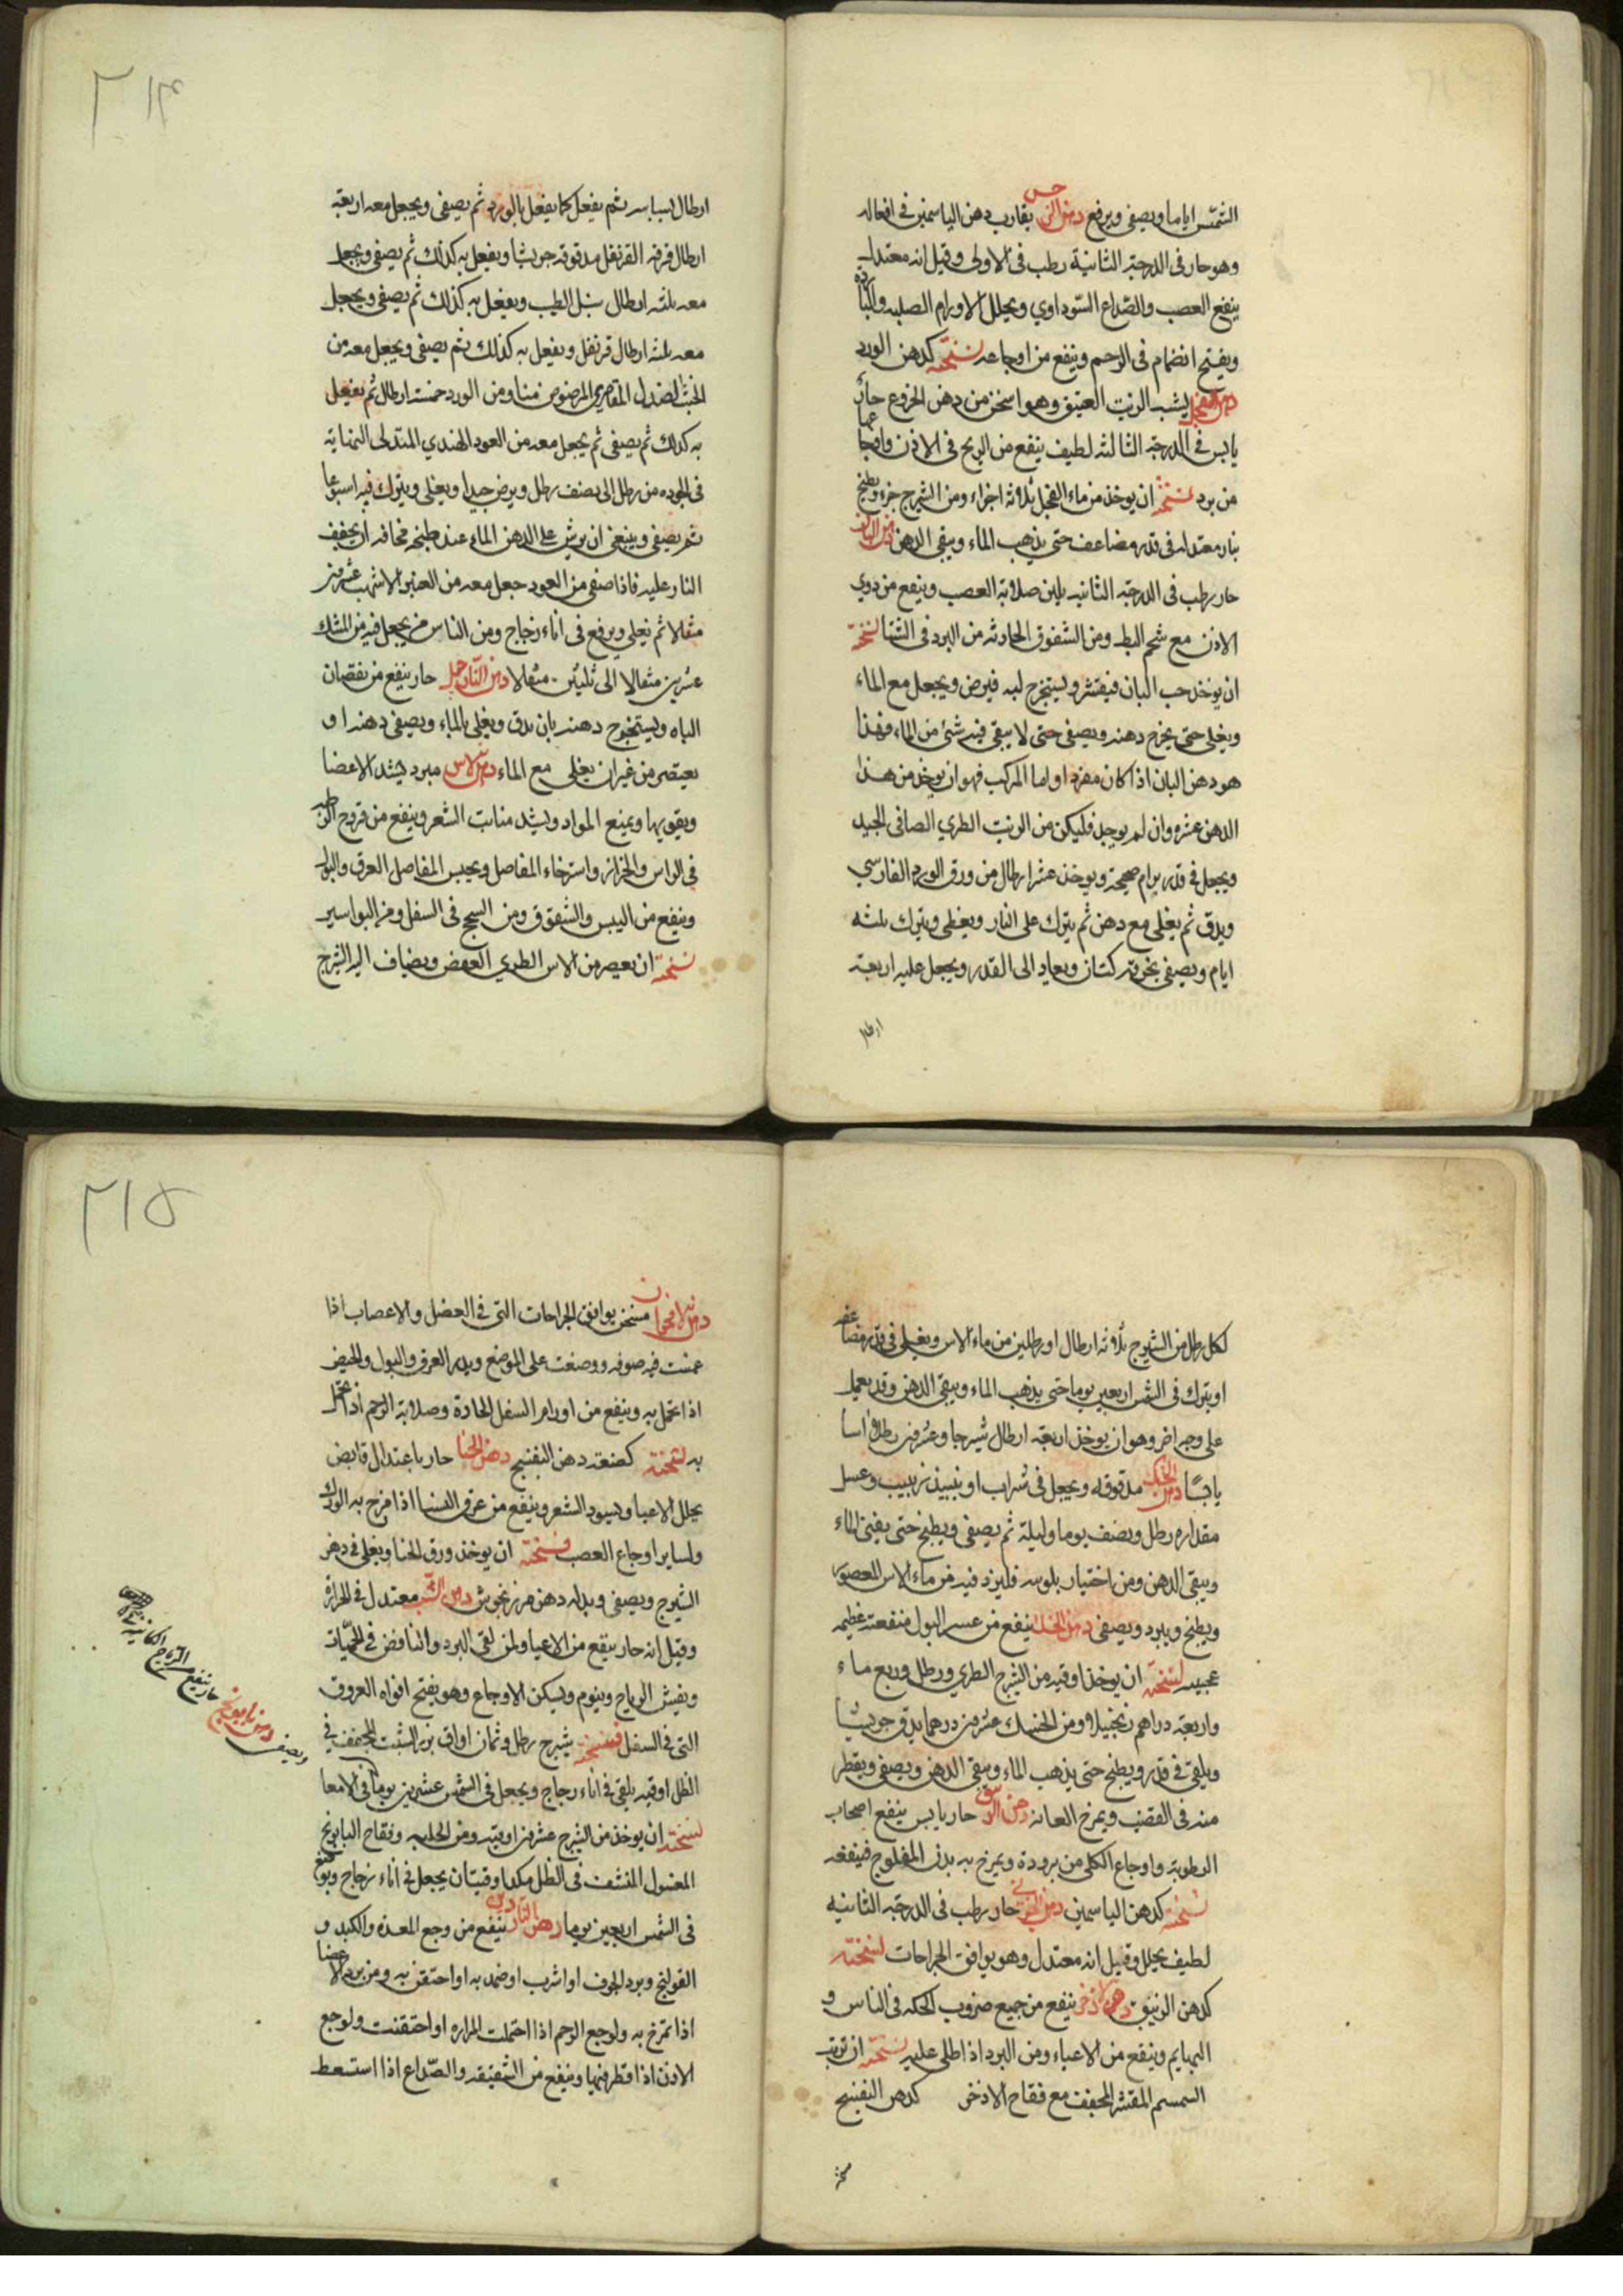 الشمس اياما ويصفى ويرفع دهن النرجس يقارب دهن الياسمين في افعاله
وهو حار في الدرجة الثانية رطب في الاولى وقيل انه معتدل
ينفع العصب والصداع السوداوي ويحلل الاورام الصلبه والباردة
ويفتح انضمام في الرحم وينفع من اوجاعه نسخته كدهن الورد
دهن الفجل يشبه الزيت العتيق وهو اسخن من دهن الخروع حار
يابس في الدرجة الثالثه لطيف ينفع من الريح في الاذن واوجاعها
من برد نسخته ان يوخذ من ماء الفجل ثلاثه اجزاء ومن الشيرج جزء ويطبخ
بنار معتدله في قدر مضاعف حتى يذهب الماء ويبقى الدهن دهن البان
حار رطب في الدرجة الثانيه يلين صلابة العصب وينفع من دوي
الاذن مع شحم البط ومن الشقوق الحادثه من البرد في الشتا نسخته
ان يوخذ حب البان فيقشر ويستخرج لبه فيرض ويجعل مع الماء
ويغلى حتى يخرج دهنه ويصفى حتى لا يبقى فيه شئ من الماء فهذا
هو دهن البان اذا كان مفردا واما المركب فهو ان يوخذ من هذا
الدهن عشره وان لم يوجد فليكن من الزيت الطري الصافي الجيد
ويجعل في قدر برام صحيحة ويوخذ عشر ارطال من ورق الورد الفارسي
ويدق ثم يغلى مع دهن ثم يترك على النار ويغطى ويترك ثلثه
ايام ويصفى بخرقة كتان ويعاد الى القدر ويجعل عليه اربعة
ارطال
٢١٤
ارطال بسباسه ثم يفعل كما يفعل بالورد ثم يصفى ويجعل معه اربعة
ارطال قرفه القرنفل مدقوقه جريشا ويفعل به كذلك ثم يصفى ويجعل
معه ثلثه ارطال سنبل الطيب ويفعل به كذلك ثم يصفى ويجعل
معه ثلثه ارطال قرنفل ويفعل به كذلك ثم يصفى ويجعل معه من
الصندل المقاصري المرضوض منا ومن الورد خمسة ارطال ثم يفعل
به كذلك ثم يصفى ثم يجعل معه من العود الهندي المندلى
في الجوده من رطل الى نصف رطل ويرض جيدا ويغلى ويترك فيه اسبوعا
ثم يصفى وينبغي ان يرش على الدهن الماء عند طبخه مخافه ان يخفف
النار عليه فاذا صفى من العود جعل معه من العنبر الاشهب عشرين
مثقالا ثم يغلى ويرفع في اناء زجاج ومن الناس من يجعل فيه من المسك
عشرين مثقالا الى ثلثين مثقالا دهن النارجيل حار ينفع من نقصان
الباه ويستخرج دهنه بان يدق ويغلى بالماء ويصفى دهنه او
يعتصر من غير ان يغلى مع الماء دهن الاس مبرد يشد الاعضا
ويقويها ويمنع المواد ويشد منابت الشعر وينفع من قروح الرطبه
في الراس والحزاز واسترخاء المفاصل ويحبس المفاصل العرق والبول
وينفع من اليبس والشقوق ومن السحج في السفل ومن البواسير
نسخته ان يعصر من الاس الطري الغض ويضاف اليه الشيرج
لكل رطل من الشيرج ثلاثه ارطال او رطلين من ماء الاس ويغلى في قدر مضاعفه
او يترك في الشمس اربعين يوما حتى يذهب الماء ويبقى الدهن وقد يعمل
على وجه اخر وهو ان يوخذ اربعة ارطال شيرجا وعشرين رطلا اسا
يابسا مدقوقه ويجعل في شراب او نبيذ زبيب وعسل
مقداره رطل ونصف يوما وليلة ثم يصفى ويطبخ حتى يفنى الماء
ويبقى الدهن ومن اختيار بلونه فليزد فيه من ماء الاس المعصور
ويطبخ ويبرد ويصفى دهن الحسك ينفع من عسر البول منفعة عظيمه
عجيبه نسخته ان يوخذ اوقيه من الشيرج الطري ورطل وربع ماء
واربعة دراهم زنجبيل ومن الحسك عشرين درهما يدق جريشا
ويلقى في قدر ويطبخ حتى يذهب الماء ويبقى الدهن ويصفى ويقطر
منه في القضيب ويمرخ العانه دهن السوسن حار يابس ينفع اصحاب
الرطوبة واوجاع الكلى من برودة ويمرخ به بدن المفلوج فينفعه
نسخته كدهن الياسمين دهن الخيري حار رطب في الدرجة الثانيه
لطيف يحلل وقيل انه معتدل وهو يوافق الجراحات نسخته
كدهن الزنبق دهن الاذخر ينفع من جميع ضروب الحكه في الناس و
البهايم وينفع من الاعياء ومن البرد اذا اطلى عليه نسخته ان يربب
السمسم المقشر المجفف مع فقاح الاذخر كدهن البنفسج
٢١٥
دهن الاقحوان مسخن يوافق الجراحات التي في العضل والاعصاب اذا
غمست فيه صوفه ووضعت على الموضع ويدر العرق والبول والحيض
اذا احتمل به وينفع من اورام السفل الحادة وصلابة الرحم اذا احتمل
به نسخته كصنعة دهن البنفسج دهن الحنا حار باعتدال قابض
يحلل الاعيا ويسود الشعر وينفع من عرق النسا اذا مرخ به الورك
ولساير اوجاع العصب نسخته ان يوخذ ورق الحنا ويغلى في دهن
الشيرج ويصفى وبدله دهن مرزنجوش دهن الشبت معتدل في الحرارة
وقيل انه حار ينفع من الاعيا ولمن لقى البرد والنافض في الحميات
ويفش الرياح وينوم ويسكن الاوجاع وهو يفتح افواه العروق
التي في السفل نسخته شيرج رطل وثمان اواق بزر الشبت المجفف في
الظل اوقيه يلقى في اناء زجاج ويجعل في الشمس عشرين يوما في الامعا
نسخته ان يوخذ من الشيرج عشرين اوقية ومن الحلبه وفقاح البابونج
المغسول المنشف في الظل مكد اوقيتان يجعل في اناء زجاج ويوضع
في الشمس اربعين يوما دهن الناردين ينفع من وجع المعده والكبد و
القولنج وبرد الجوف اذا شرب او ضمد به او احتقن به ومن برد الاعضا
اذا تمرخ به ولوجع الرحم اذا احتملت المراره او احتقنت ولوجع
الاذن اذا قطر فيها وينفع من الشقيقه والصداع اذا استعط
ويصفى دهن بابونج حار ينفع من الرياح الكائنة